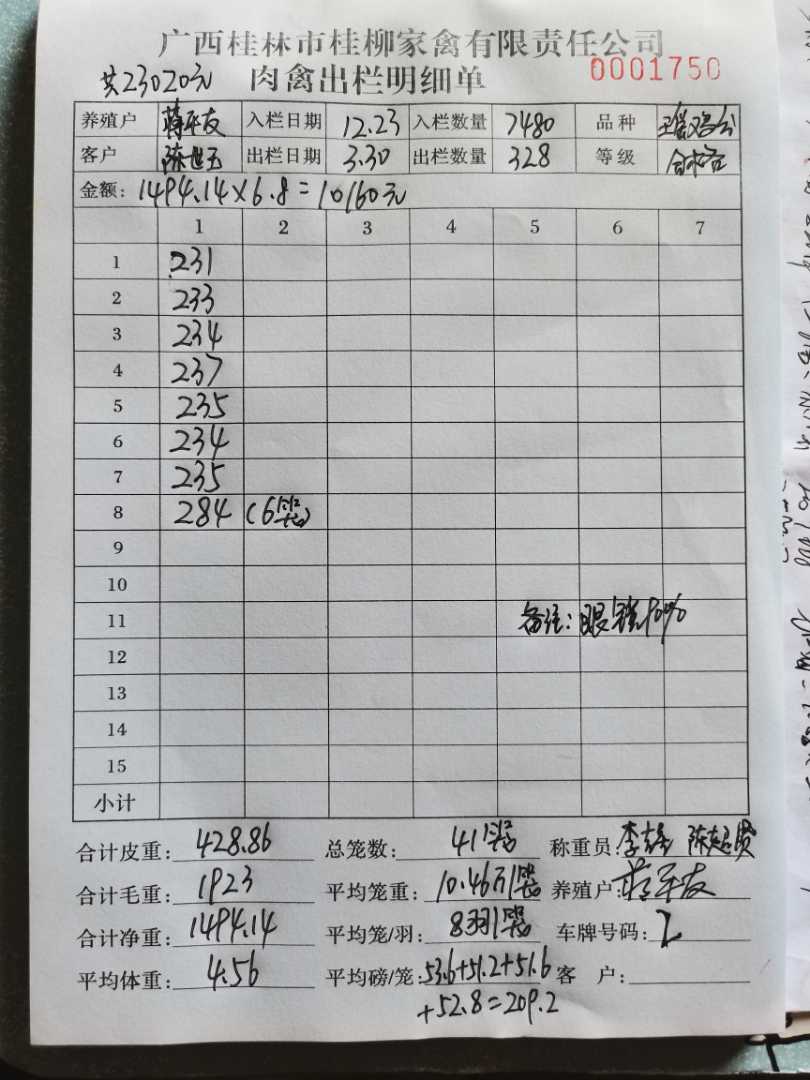 广西桂林市桂柳家禽有限责任公司
共23020元 肉禽出栏明细单 0001750
养殖户 蒋平友 入栏日期 12.23 入栏数量 7480 品种
客户 陈世玉 出栏日期 3.30 出栏数量 328 等级 合格
金额: 1494.14×6.8=10160元
1 2 3 4 5 6 7
1 231
2 233
3 234
4 237
5 235
6 234
7 235
8 284 (6笼)
9
10
11 备注: 眼 90%
12
13
14
15
小计
合计皮重: 428.86 总笼数: 41笼 称重员: 李 陈超贤
合计毛重: 1923 平均笼重: 10.46斤/笼 养殖户: 蒋平友
合计净重: 1494.14 平均笼/羽: 8羽/笼 车牌号码:
平均体重: 4.56 平均磅/笼: 53.6+51.2+51.6 客 户:
+52.8=209.2